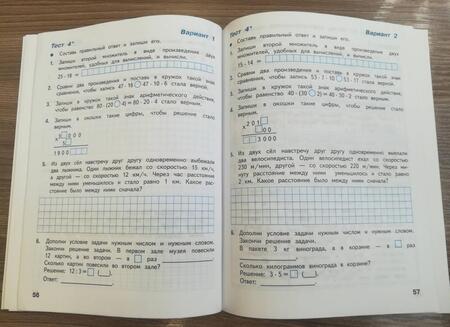 Тест 4*
Вариант 1
● Составь правильный ответ и запиши его.
1. Запиши второй множитель в виде произведения двух
множителей, удобных для вычислений, и вычисли.
25 · 18 =
2. Сравни два произведения и поставь в кружок такой знак
сравнения, чтобы запись 47 · 19 ○ 47 · 10 · 6 стала верной.
3. Запиши в кружок такой знак арифметического действия,
чтобы равенство 80 · (20 ○ 4) = 80 · 20 · 4 стало верным.
4. Запиши в окошки такие цифры, чтобы решение стало
верным.
5. Из двух сёл навстречу друг другу одновременно выбежали
два лыжника. Один лыжник бежал со скоростью 15 км/ч,
а другой — со скоростью 12 км/ч. Через час расстояние
между ними уменьшилось и стало равно 1 км. Какое рас-
стояние было между ними сначала?
6. Дополни условие задачи нужным числом и нужным словом.
Закончи решение задачи. В первом зале музея повесили
12 картин, а во втором — в □ раз
Сколько картин повесили во втором зале?
Решение: 12 : 3 = □ ( ).
Ответ:
56
Тест 4*
Вариант 2
● Составь правильный ответ и запиши его.
1. Запиши второй множитель в виде произведения двух
множителей, удобных для вычислений, и вычисли.
15 · 14 =
2. Сравни два произведения и поставь в кружок такой знак
сравнения, чтобы запись 53 · 10 ○ 53 · 11 стала верной.
3. Запиши в кружок такой знак арифметического действия,
чтобы равенство 40 · (30 ○ 2) = 40 · 30 · 2 стало верным.
4. Запиши в окошки такие цифры, чтобы решение стало
верным.
5. Из двух сёл навстречу друг другу одновременно выехали
два велосипедиста. Один велосипедист ехал со скоростью
230 м/мин, другой — со скоростью 220 м/мин. Через ми-
нуту расстояние между ними уменьшилось и стало равно
2 км. Какое расстояние было между ними сначала?
6. Дополни условие задачи нужным числом и нужным словом.
Закончи решение задачи.
В пакете 3 кг винограда, а в корзине — в □ раз
Сколько килограммов винограда в корзине?
Решение: 3 · 5 = □ ( ).
Ответ:
57